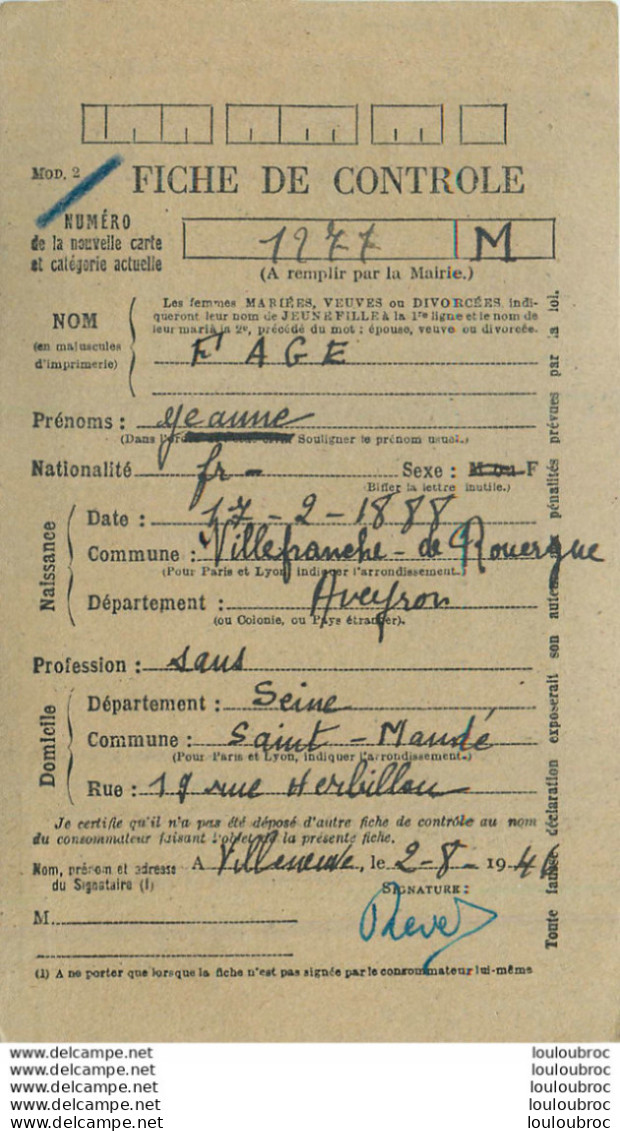 MOD. 2 FICHE DE CONTROLE
NUMÉRO
de la nouvelle carte
et catégorie actuelle
1277 M
(A remplir par la Mairie.)
NOM
(en majuscules
d'imprimerie)
Les femmes MARIÉES, VEUVES ou DIVORCÉES, indi-
queront leur nom de JEUNE FILLE à la 1re ligne et le nom de
leur mari à la 2e, précédé du mot : épouse, veuve ou divorcée.
FAGE
Prénoms : Jeanne
(Dans l'ordre Souligner le prénom usuel.)
Nationalité fr - Sexe : M ou F
(Biffer la lettre inutile.)
Naissance
Date : 17-2-1888
Commune : Villefranche-de Rouergue
(Pour Paris et Lyon, indiquer l'arrondissement.)
Département : Aveyron
(ou Colonie, ou Pays étranger).
Profession : sans
Domicile
Département : Seine
Commune : Saint-Mandé
(Pour Paris et Lyon, indiquer l'arrondissement.)
Rue : 19 rue Herbillon
Je certifie qu'il n'a pas été déposé d'autre fiche de contrôle au nom
du consommateur faisant l'objet de la présente fiche.
Nom, prénom et adresse
du Signataire (1)
A Villeneuve, le 2-8-1946
SIGNATURE :
M
(1) A ne porter que lorsque la fiche n'est pas signée par le consommateur lui-même
Toute fausse déclaration exposerait son auteur pénalités prévues par la loi.
www.delcampe.net louloubroc
www.delcampe.net louloubroc
www.delcampe.net louloubroc
www.delcampe.net louloubroc
www.delcampe.net louloubroc